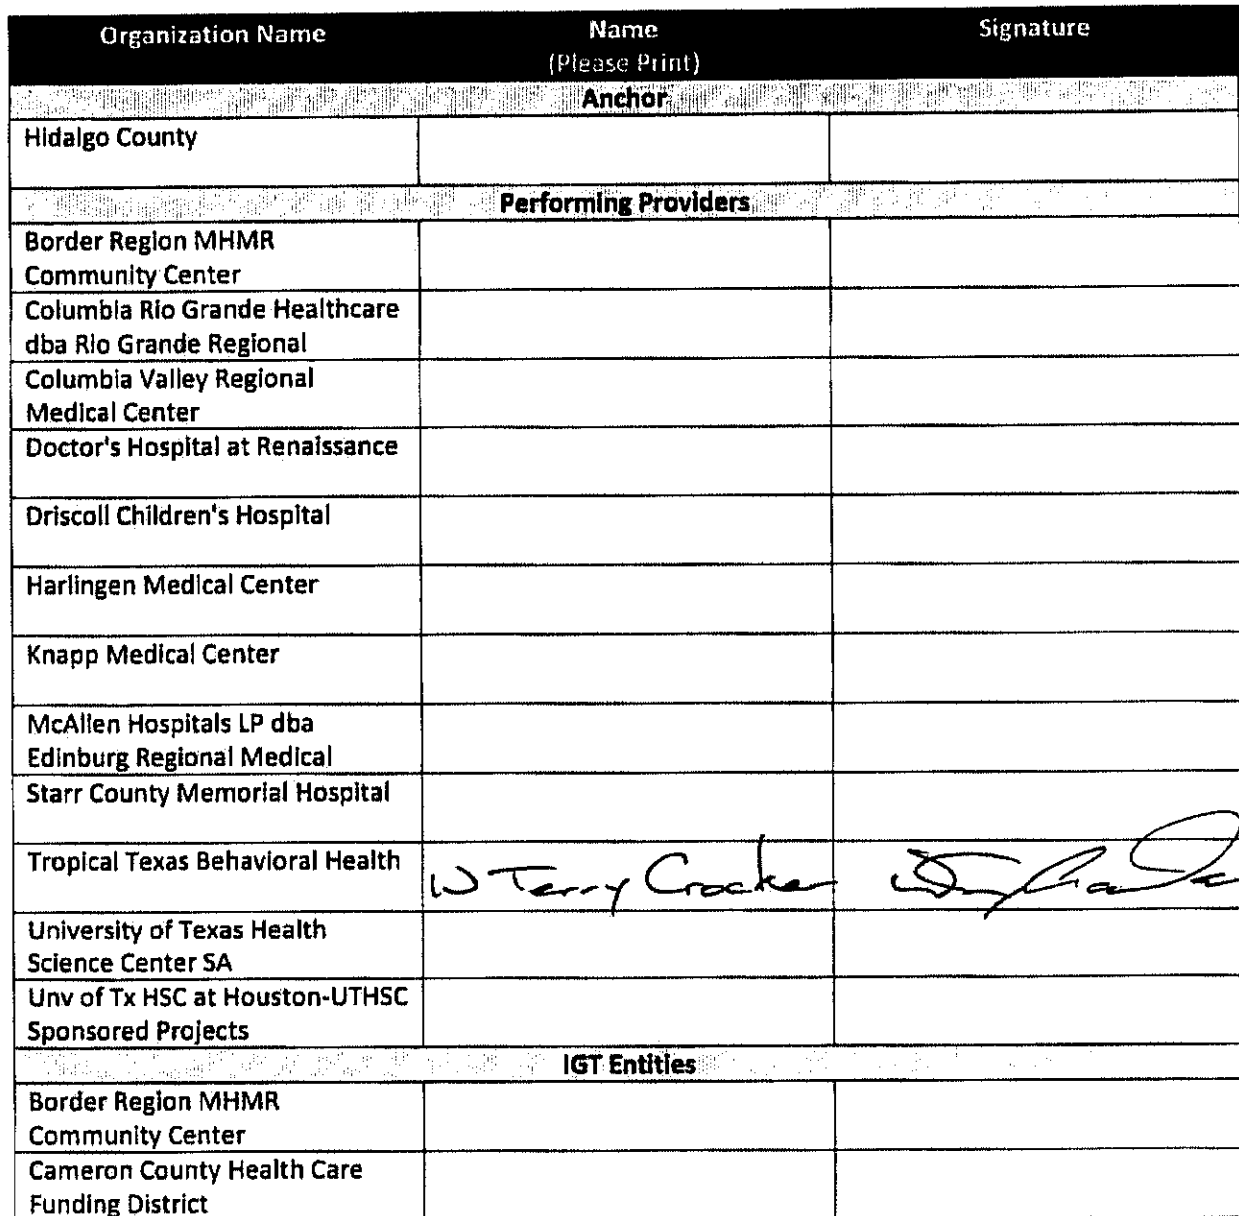 Organization Name Name Signature
(Please Print)
Anchor
Hidalgo County
Performing Providers
Border Region MHMR
Community Center
Columbia Rio Grande Healthcare
dba Rio Grande Regional
Columbia Valley Regional
Medical Center
Doctor's Hospital at Renaissance
Driscoll Children's Hospital
Harlingen Medical Center
Knapp Medical Center
McAllen Hospitals LP dba
Edinburg Regional Medical
Starr County Memorial Hospital
Tropical Texas Behavioral Health W Terry Crocker
University of Texas Health
Science Center SA
Unv of Tx HSC at Houston-UTHSC
Sponsored Projects
IGT Entities
Border Region MHMR
Community Center
Cameron County Health Care
Funding District